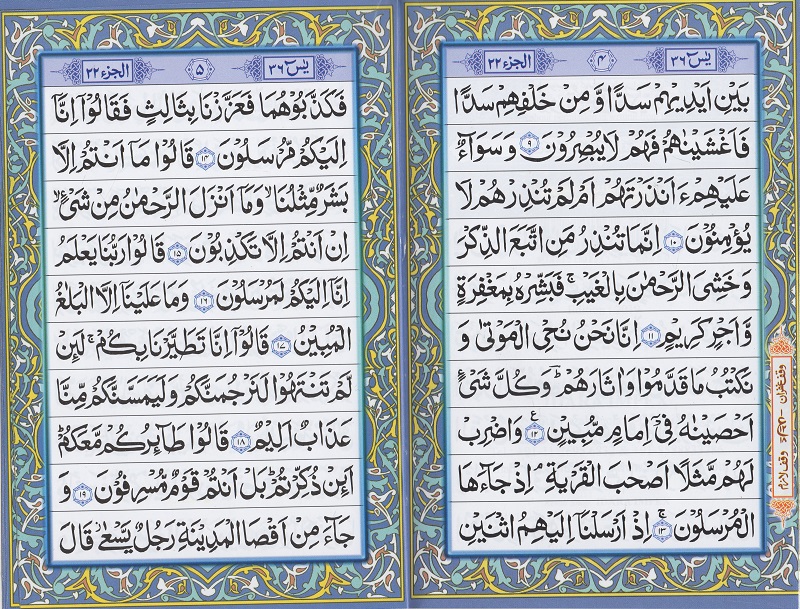 يٰسٓ ٣٦ ۴ الجزء ٢٢
بَيْنِ اَيْدِيْهِمْ سَدًّا وَّ مِنْ خَلْفِهِمْ سَدًّا
فَاَغْشَيْنٰهُمْ فَهُمْ لَا يُبْصِرُوْنَ ۹ وَ سَوَآءٌ
عَلَيْهِمْ ءَاَنْذَرْتَهُمْ اَمْ لَمْ تُنْذِرْهُمْ لَا
يُؤْمِنُوْنَ ۱۰ اِنَّمَا تُنْذِرُ مَنِ اتَّبَعَ الذِّكْرَ
وَ خَشِىَ الرَّحْمٰنَ بِالْغَيْبِ ۚ فَبَشِّرْهُ بِمَغْفِرَةٍ
وَّ اَجْرٍ كَرِيْمٍ ۱۱ اِنَّا نَحْنُ نُحْىِ الْمَوْتٰى وَ
نَكْتُبُ مَا قَدَّمُوْا وَ اٰثَارَهُمْ ؕ وَ كُلَّ شَىْءٍ
اَحْصَيْنٰهُ فِىْٓ اِمَامٍ مُّبِيْنٍ ۱۲ ع وَ اضْرِبْ
لَهُمْ مَّثَلًا اَصْحٰبَ الْقَرْيَةِ ۘ اِذْ جَآءَهَا
الْمُرْسَلُوْنَ ۱۳ ۚ اِذْ اَرْسَلْنَآ اِلَيْهِمُ اثْنَيْنِ
وقف غفران
وقف لازم
يٰسٓ ٣٦ ۵ الجزء ٢٢
فَكَذَّبُوْهُمَا فَعَزَّزْنَا بِثَالِثٍ فَقَالُوْٓا اِنَّآ
اِلَيْكُمْ مُّرْسَلُوْنَ ۱۴ قَالُوْا مَآ اَنْتُمْ اِلَّا
بَشَرٌ مِّثْلُنَا ۙ وَ مَآ اَنْزَلَ الرَّحْمٰنُ مِنْ شَىْءٍ ۙ
اِنْ اَنْتُمْ اِلَّا تَكْذِبُوْنَ ۱۵ قَالُوْا رَبُّنَا يَعْلَمُ
اِنَّآ اِلَيْكُمْ لَمُرْسَلُوْنَ ۱۶ وَ مَا عَلَيْنَآ اِلَّا الْبَلٰغُ
الْمُبِيْنُ ۱۷ قَالُوْٓا اِنَّا تَطَيَّرْنَا بِكُمْ ۚ لَئِنْ
لَّمْ تَنْتَهُوْا لَنَرْجُمَنَّكُمْ وَ لَيَمَسَّنَّكُمْ مِّنَّا
عَذَابٌ اَلِيْمٌ ۱۸ قَالُوْا طَآئِرُكُمْ مَّعَكُمْ ؕ
اَئِنْ ذُكِّرْتُمْ ؕ بَلْ اَنْتُمْ قَوْمٌ مُّسْرِفُوْنَ ۱۹ وَ
جَآءَ مِنْ اَقْصَا الْمَدِيْنَةِ رَجُلٌ يَّسْعٰى قَالَ